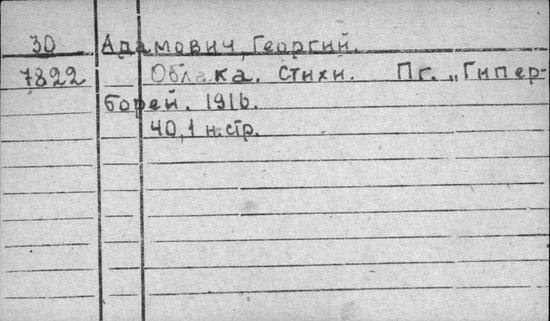 30 Адамович, Георгий.
7822 Облака. Стихи. Пг. „Гипер-
борей. 1916.
40,1 н.стр.